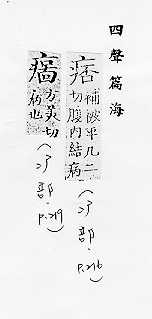 四聲篇海
痞
補被平几二
切腹內結病
(疒部. p.216)
方美切
病也
(疒部. p.219)